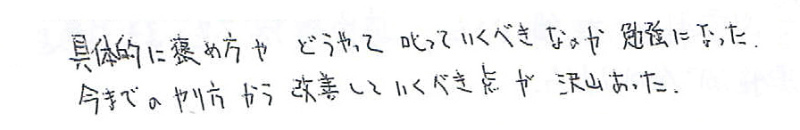 具体的に褒め方や どうやって 叱っていくべきなのか 勉強になった.
今までのやり方から改善していくべき点が沢山あった.